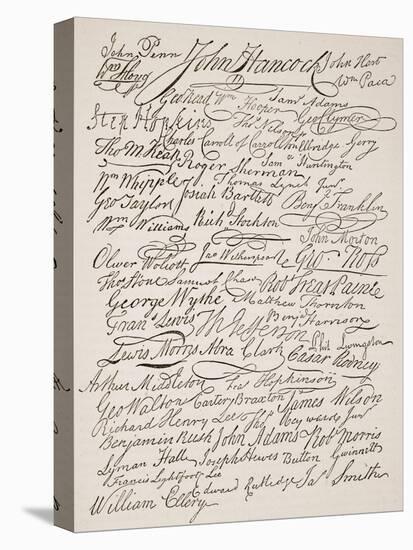 John Penn John Hancock John Hart
Wm Floyd Wm Paca
Geo Read Wm Hooper Saml Adams
Step Hopkins Thos Nelson jr Geo Clymer
Charles Carroll of Carrollton Elbridge Gerry
Tho M:Kean Roger Sherman Saml Huntington
Wm Whipple Thomas Lynch Junr
Geo Taylor Josiah Bartlett Benj Franklin
Wm Williams Richd Stockton
John Morton
Oliver Wolcott Jno Witherspoon Geo. Ross
Thos Stone Samuel Chase Rob Treat Paine
George Wythe Matthew Thornton
Frans Lewis Th Jefferson Benja Harrison
Lewis Morris Abra Clark Phil Livingston
Cæsar Rodney
Arthur Middleton Fras Hopkinson
Geo Walton Carter Braxton James Wilson
Richard Henry Lee Thos Heyward Junr
Benjamin Rush John Adams Robt Morris
Lyman Hall Joseph Hewes Button Gwinnett
Francis Lightfoot Lee
William Ellery Edward Rutledge Jas Smith